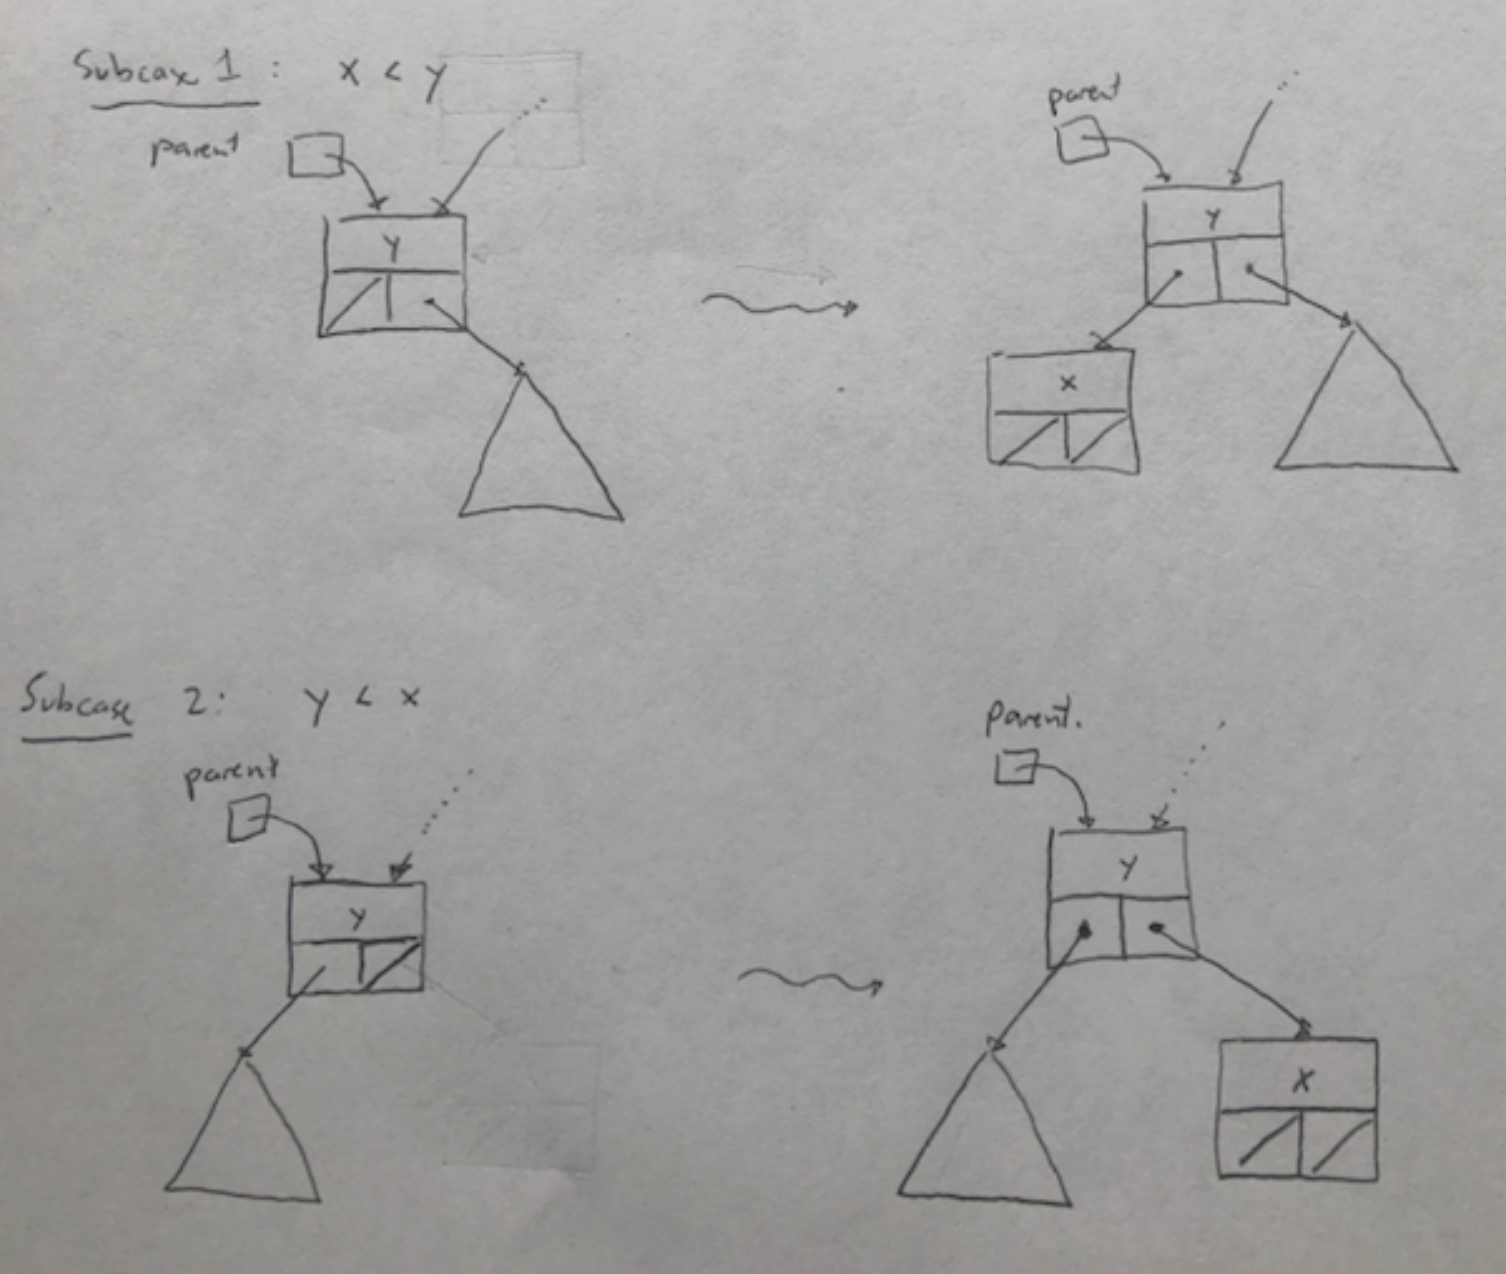 Subcase 1 : x < y
parent
parent
y
y
x
Subcase 2: y < x
parent
parent.
y
y
x